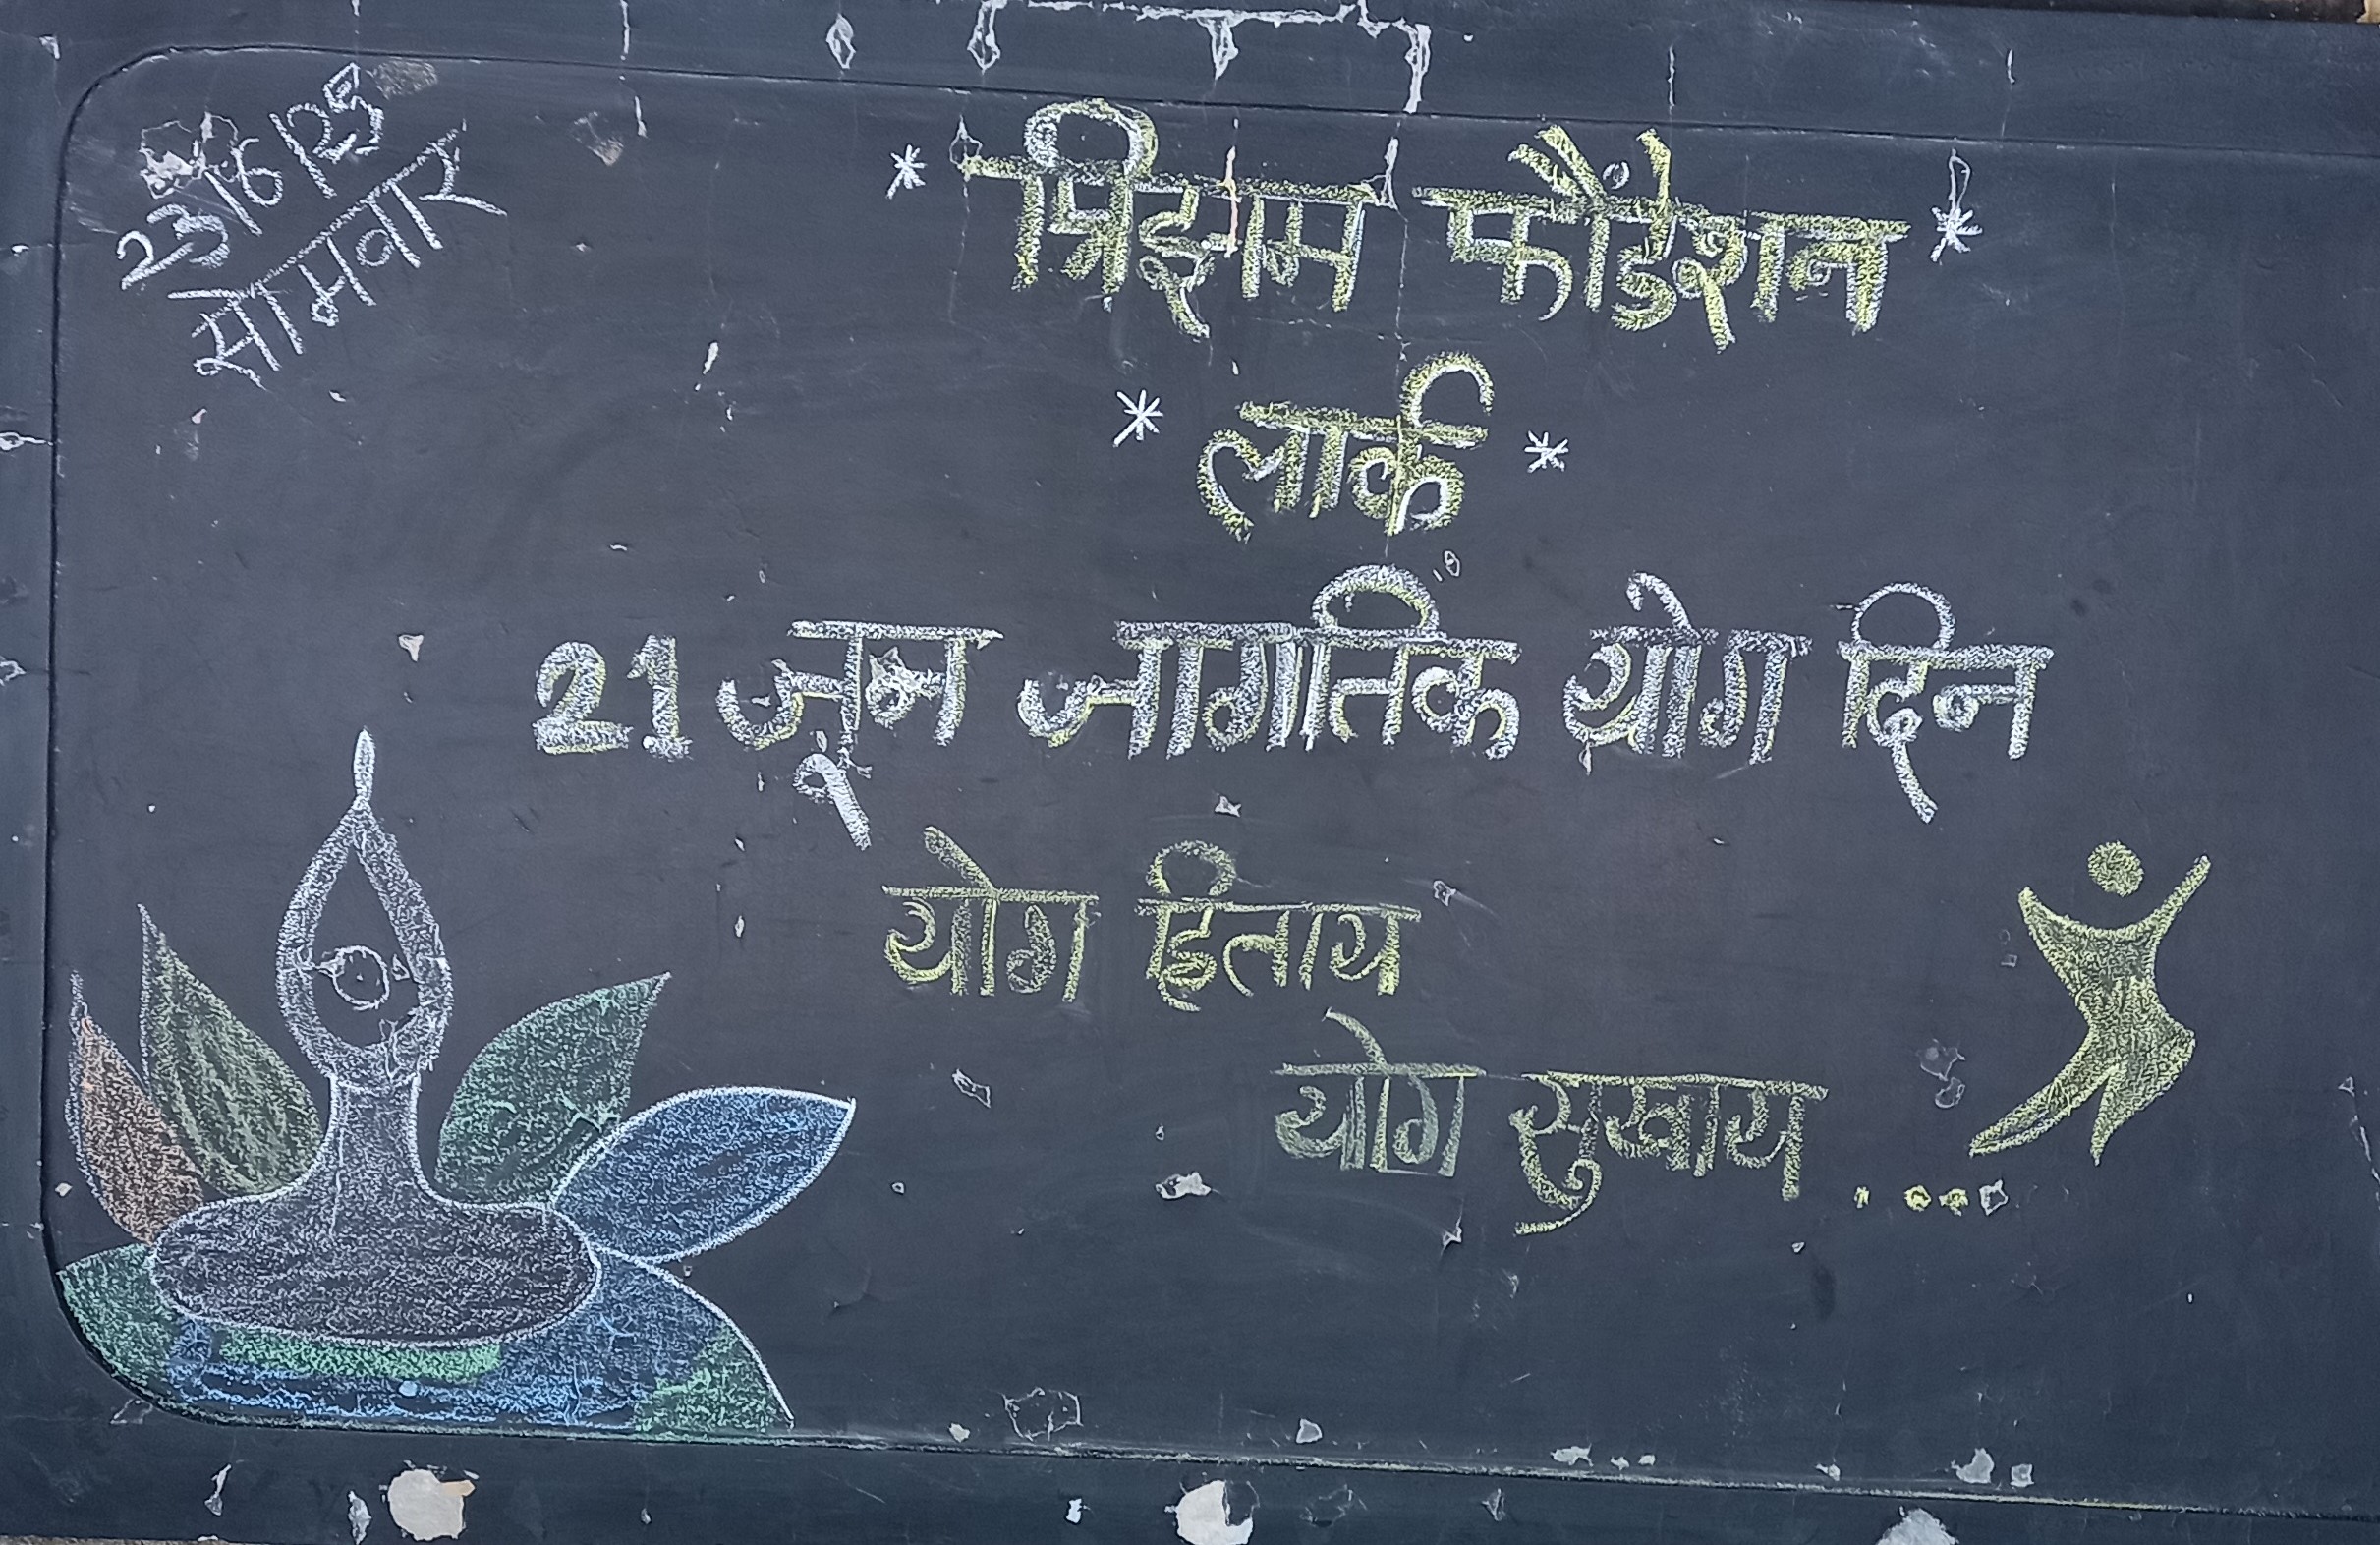 23/6/25
सोमवार
* प्रिझम फौंडेशन *
* लार्क *
21 जून जागतिक योग दिन
योग हिताय
योग सुखाय ....